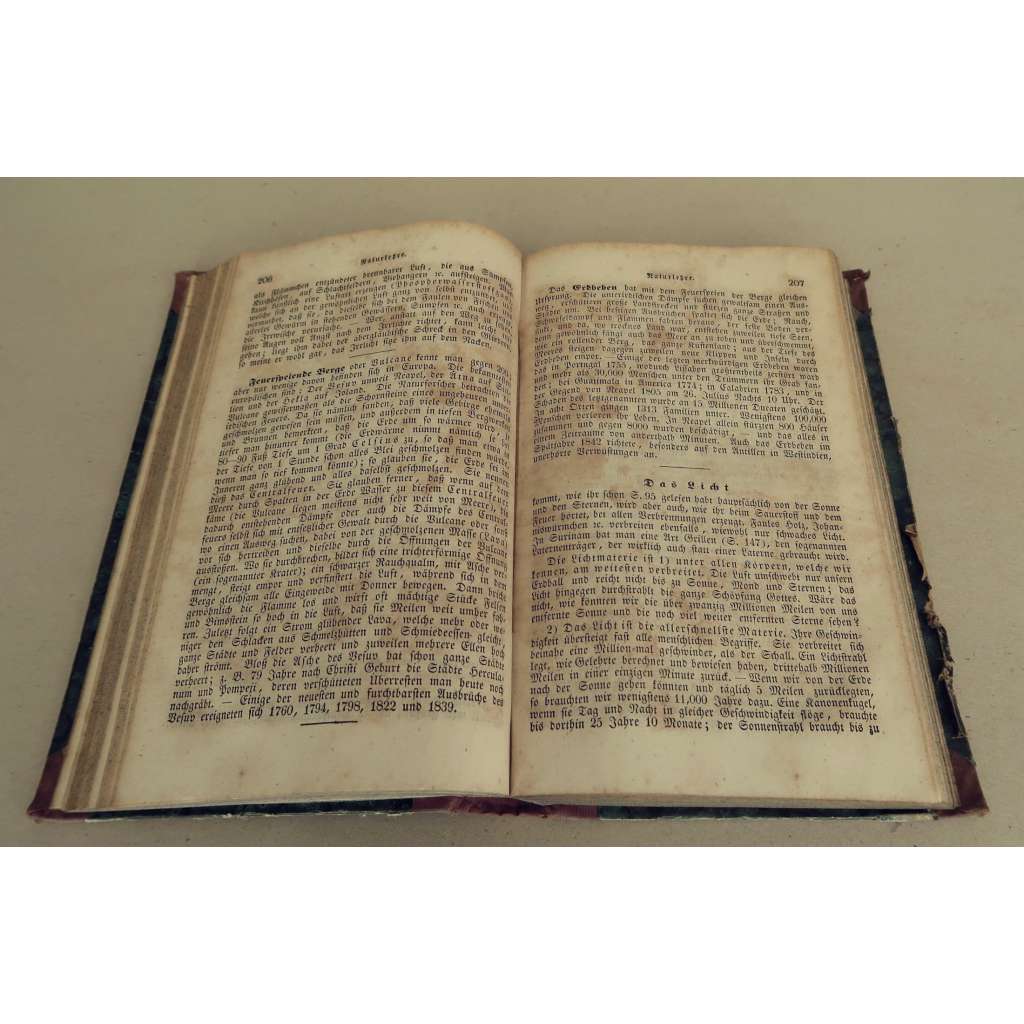 206
Naturlehre.
als Flämmchen entzündeter brennbarer Luft, die aus Sümpfen,
Kirchhöfen, auf Schlachtfeldern, Viehangern ꝛc. aufsteigen. Man
kann künstlich eine Luftart erzeugen (Phosphorwasserstoffgas),
welche sich an der gewöhnlichen Luft ganz von selbst entzündet, und
vermuthet, daß sie, da diese sich bei dem Faulen von Fischen und
feine Augen voll Angst nach dem Irrlichte richtet, kann leicht irre
gehen; liegt ihm dabei der abergläubische Schreck in den Gliedern,
so meint er wohl gar, das Irrlicht sitze ihm auf dem Nacken.
Feuerspeiende Berge oder Vulcane kennt man gegen 200,
aber nur wenige davon befinden sich in Europa. Die bekanntesten
europäischen sind: Der Vesuv unweit Neapel, der Ätna auf Sici-
lien und der Hekla auf Island. Die Naturforscher betrachten die
Vulcane gewissermaßen als die Schornsteine eines ungeheuren unter-
irdischen Feuers. Da sie nämlich fanden, daß viele Gebirge ehemals
geschmolzen gewesen sein müssen, und außerdem in tiefen Bergwerken
und Brunnen bemerkten, daß die Erde um so wärmer wird, je
tiefer man hinunter kommt (die Erdwärme nimmt nämlich je bei
80—90 Fuß Tiefe um 1 Grad Celsius zu, so daß man etwa in
der Tiefe von 1 Stunde schon alles Blei geschmolzen finden würde,
wenn man so tief kommen könnte); so glauben sie, die Erde sei im
Inneren ganz glühend und alles daselbst geschmolzen. Sie nennen
dieß das Centralfeuer. Sie glauben ferner, daß wenn aus dem
Meere durch Spalten in der Erde Wasser zu diesem Centralfeuer
käme (die Vulcane liegen meistens nicht sehr weit vom Meere), die
dadurch entstehenden Dämpfe oder auch die Dämpfe des Central-
feuers selbst sich mit entsetzlicher Gewalt durch die Vulcane oder sonst
wo einen Ausweg suchen, dabei von der geschmolzenen Masse (Lava)
vor sich hertreiben und dieselbe durch die Öffnungen der Vulcane
ausstoßen. Wo sie durchbrechen, bildet sich eine trichterförmige Öffnung
(ein sogenannter Krater); ein schwarzer Rauchqualm, mit Asche ver-
mengt, steigt empor und verfinstert die Luft, während sich in dem
Berge gleichsam alle Eingeweide mit Donner bewegen. Dann bricht
gewöhnlich die Flamme los und wirft oft mächtige Stücke Felsen
und Bimsstein so hoch in die Luft, daß sie Meilen weit umher fah-
ren. Zuletzt folgt ein Strom glühender Lava, welche mehr oder we-
niger den Schlacken aus Schmelzhütten und Schmiedeessen gleicht,
ganze Städte und Felder verheert und zuweilen mehrere Ellen hoch
daher strömt. Bloß die Asche des Vesuv hat schon ganze Städte
verheert; z. B. 79 Jahre nach Christi Geburt die Städte Hercula-
num und Pompeji, deren verschütteten Überresten man heute noch
nachgräbt. — Einige der neuesten und furchtbarsten Ausbrüche des
Vesuv ereigneten sich 1760, 1794, 1798, 1822 und 1839.
Naturlehre.
207
Das Erdbeben hat mit dem Feuerspeien der Berge gleichen
Ursprung. Die unterirdischen Dämpfe suchen gewaltsam einen Aus-
gang, erschüttern große Landstrecken und stürzen ganze Straßen und
Städte um. Bei heftigen Ausbrüchen spaltet sich die Erde; Rauch,
Schwefeldampf und Flammen fahren heraus, der feste Boden ver-
sinkt, und da, wo trocknes Land war, entstehen zuweilen tiefe Seen,
denn gewöhnlich fängt auch das Meer an zu toben und überschwemmt,
wie ein rollender Berg, das ganze Küstenland; aus der Tiefe des
Meeres steigen dagegen zuweilen neue Klippen und Inseln durch
Erdbeben empor. Einige der letzten und fürchterlichsten Erdbeben waren
das in Portugal 1755, wodurch Lissabon großtentheils zerstört ward
und mehr als 30,000 Menschen unter den Trümmern ihr Grab fan-
den; bei Guatimala in America 1774; in Calabrien 1783, und in
der Gegend von Neapel 1805 am 26. Julius Nachts 10 Uhr. Der
Schaden des letztgenannten wurde an 15 Millionen Ducaten geschätzt.
In acht Orten gingen 1313 Familien unter. Wenigstens 100,000
Menschen verloren ihr Leben. In Neapel allein stürzten 800 Häuser
zusammen und gegen 8000 wurden beschädigt, — und das alles in
einem Zeitraume von anderthalb Minuten. Auch das Erdbeben im
Spätjahre 1842 richtete, besonders auf den Antillen in Westindien,
unerhörte Verwüstungen an.
Das Licht
kommt, wie ihr schon S. 95 gelesen habt hauptsächlich von der Sonne
und den Sternen, wird aber auch, wie ihr beim Sauerstoff und dem
Feuer hörtet, bei allen Verbrennungen erzeugt. Faules Holz, Johan-
niswürmchen ꝛc. verbreiten ebenfalls, wiewohl nur schwaches Licht.
In Surinam hat man eine Art Grillen (S. 147), den sogenannten
Laternenträger, der wirklich auch statt einer Laterne gebraucht wird.
Die Lichtmaterie ist 1) unter allen Körpern, welche wir
kennen, am weitesten verbreitet. Die Luft umschwebt nur unsern
Erdball und reicht nicht bis zu Sonne, Mond und Sternen; das
Licht hingegen durchstrahlt die ganze Schöpfung Gottes. Wäre das
nicht, wie könnten wir die über zwanzig Millionen Meilen von uns
entfernte Sonne und die noch viel weiter entfernten Sterne sehen?
2) Das Licht ist die allerschnellste Materie. Ihre Geschwin-
digkeit übersteigt fast alle menschlichen Begriffe. Sie verbreitet sich
beinahe eine Million-mal geschwinder, als der Schall. Ein Lichtstrahl
legt, wie Gelehrte berechnet und bewiesen haben, dritthalb Millionen
Meilen in einer einzigen Minute zurück. — Wenn wir von der Erde
nach der Sonne gehen könnten und täglich 5 Meilen zurücklegten,
so brauchten wir wenigstens 11,000 Jahre dazu. Eine Kanonenkugel,
wenn sie Tag und Nacht in gleicher Geschwindigkeit flöge, brauchte
bis dorthin 25 Jahre 10 Monate; der Sonnenstrahl braucht bis zu